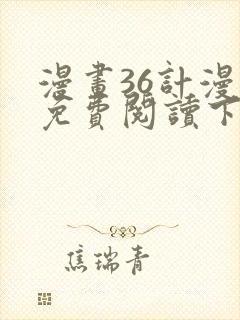 漫畫36計漫
免費閱讀下
焦瑞青